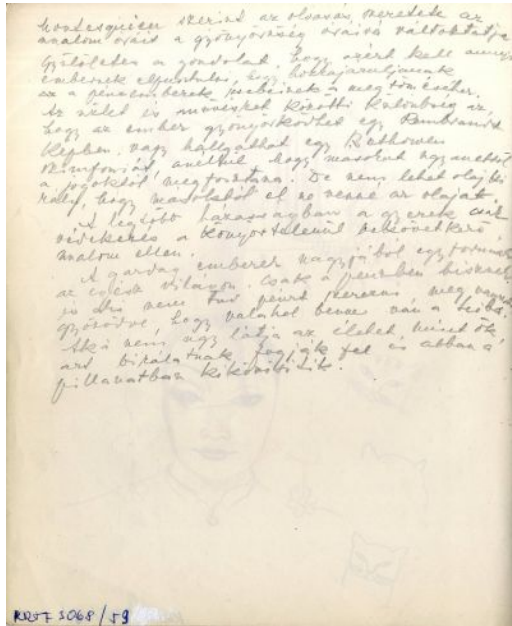 Montesquieu szerint az olvasás szeretete az
unalom óráit a gyönyörűség óráira változtatja
Gyűlöletes a gondolat, hogy azért kell annyi
embernek elpusztulni, hogy hozzájáruljanak
az a pénzemberek zsebeinek a megtöméséhez.
Az üzlet és művészet közötti különbség az,
hogy az ember gyönyörködhet egy Rembrandt
képben, vagy hallgathat egy Beethowen
szimfoniát anélkül, hogy másokat ugyanettől
a jogoktól megfosztana. De nem lehet olajki
rály, hogy másoktól el ne venné az olajat.
A legtöbb házasságban a gyerek csak
védekezés a könyörtelenül bekövetkező
unalom ellen.
A gazdag emberek nagyjából egyformák
az egész világon. Csak a pénzben bíznak
és aki nem tud pénzt szerezni, meg vannak
győződve, hogy valahol benne van a hiba.
Aki nem úgy látja az életet mint ők,
azt bírálatnak fogják fel és abban a
pillanatban kiközösítik.
3068/59